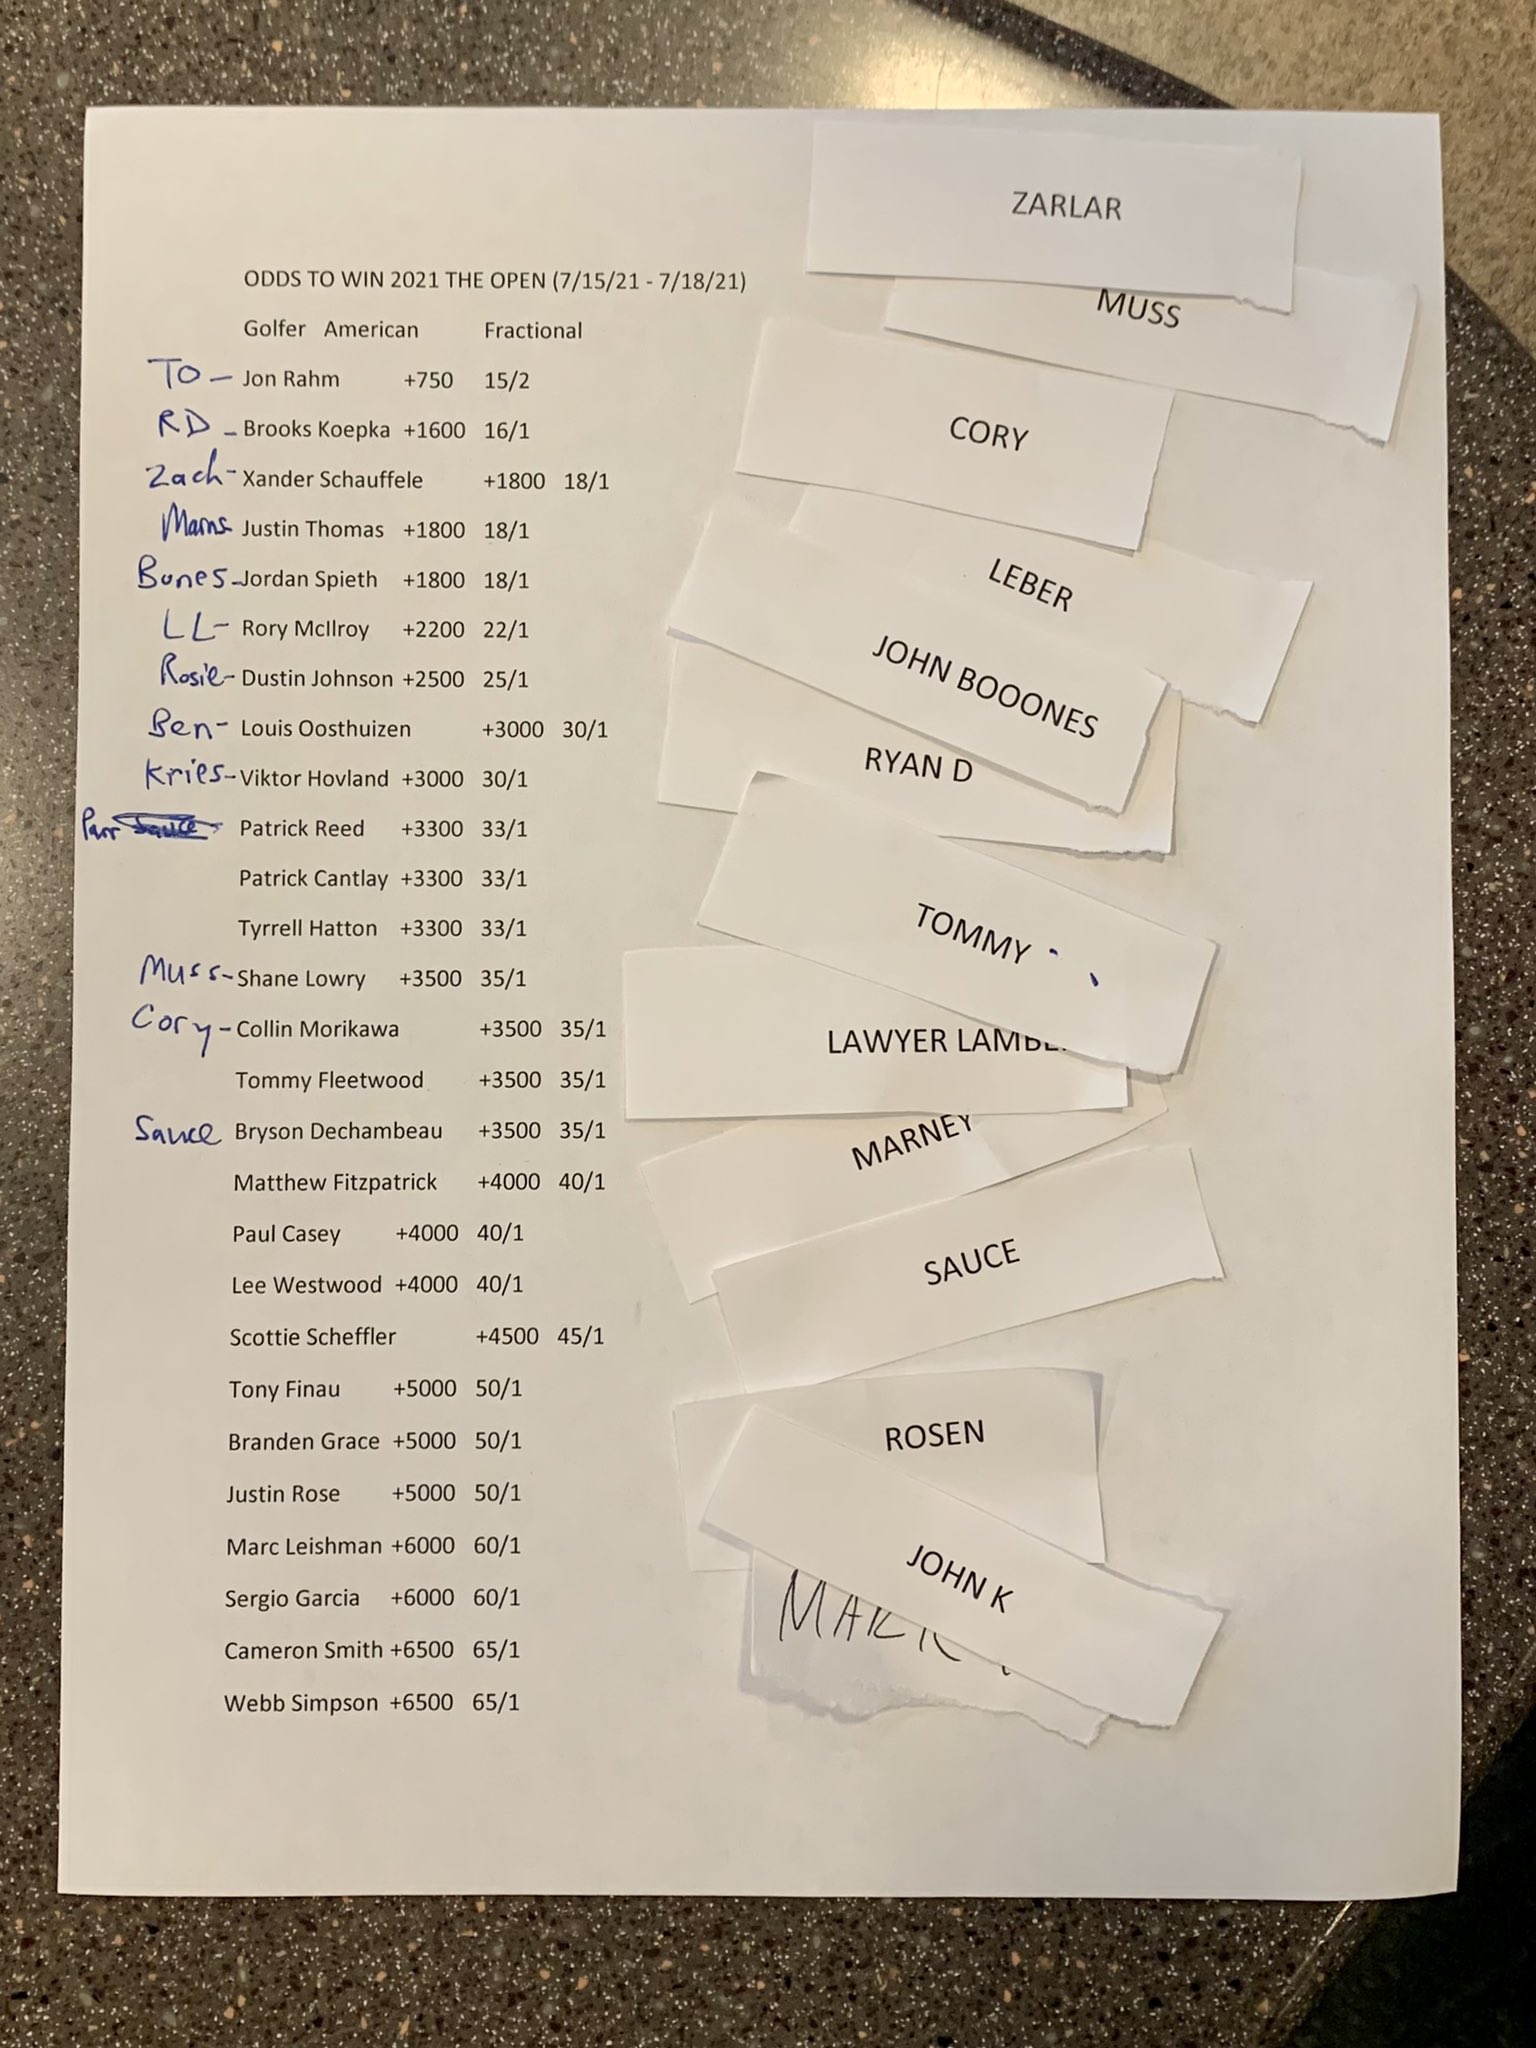 ZARLAR
MUSS
CORY
LEBER
JOHN BOOONES
RYAN D
TOMMY
LAWYER
MARNEY
SAUCE
ROSEN
JOHN K
ODDS TO WIN 2021 THE OPEN (7/15/21 - 7/18/21)
Golfer American Fractional
TO - Jon Rahm +750 15/2
RD - Brooks Koepka +1600 16/1
Zach - Xander Schauffele +1800 18/1
Justin Thomas +1800 18/1
Bones - Jordan Spieth +1800 18/1
LL - Rory McIlroy +2200 22/1
Rosie - Dustin Johnson +2500 25/1
Ben - Louis Oosthuizen +3000 30/1
Kries - Viktor Hovland +3000 30/1
Patrick Reed +3300 33/1
Patrick Cantlay +3300 33/1
Tyrrell Hatton +3300 33/1
Muss - Shane Lowry +3500 35/1
Cory - Collin Morikawa +3500 35/1
Tommy Fleetwood +3500 35/1
Sauce Bryson Dechambeau +3500 35/1
Matthew Fitzpatrick +4000 40/1
Paul Casey +4000 40/1
Lee Westwood +4000 40/1
Scottie Scheffler +4500 45/1
Tony Finau +5000 50/1
Branden Grace +5000 50/1
Justin Rose +5000 50/1
Marc Leishman +6000 60/1
Sergio Garcia +6000 60/1
Cameron Smith +6500 65/1
Webb Simpson +6500 65/1